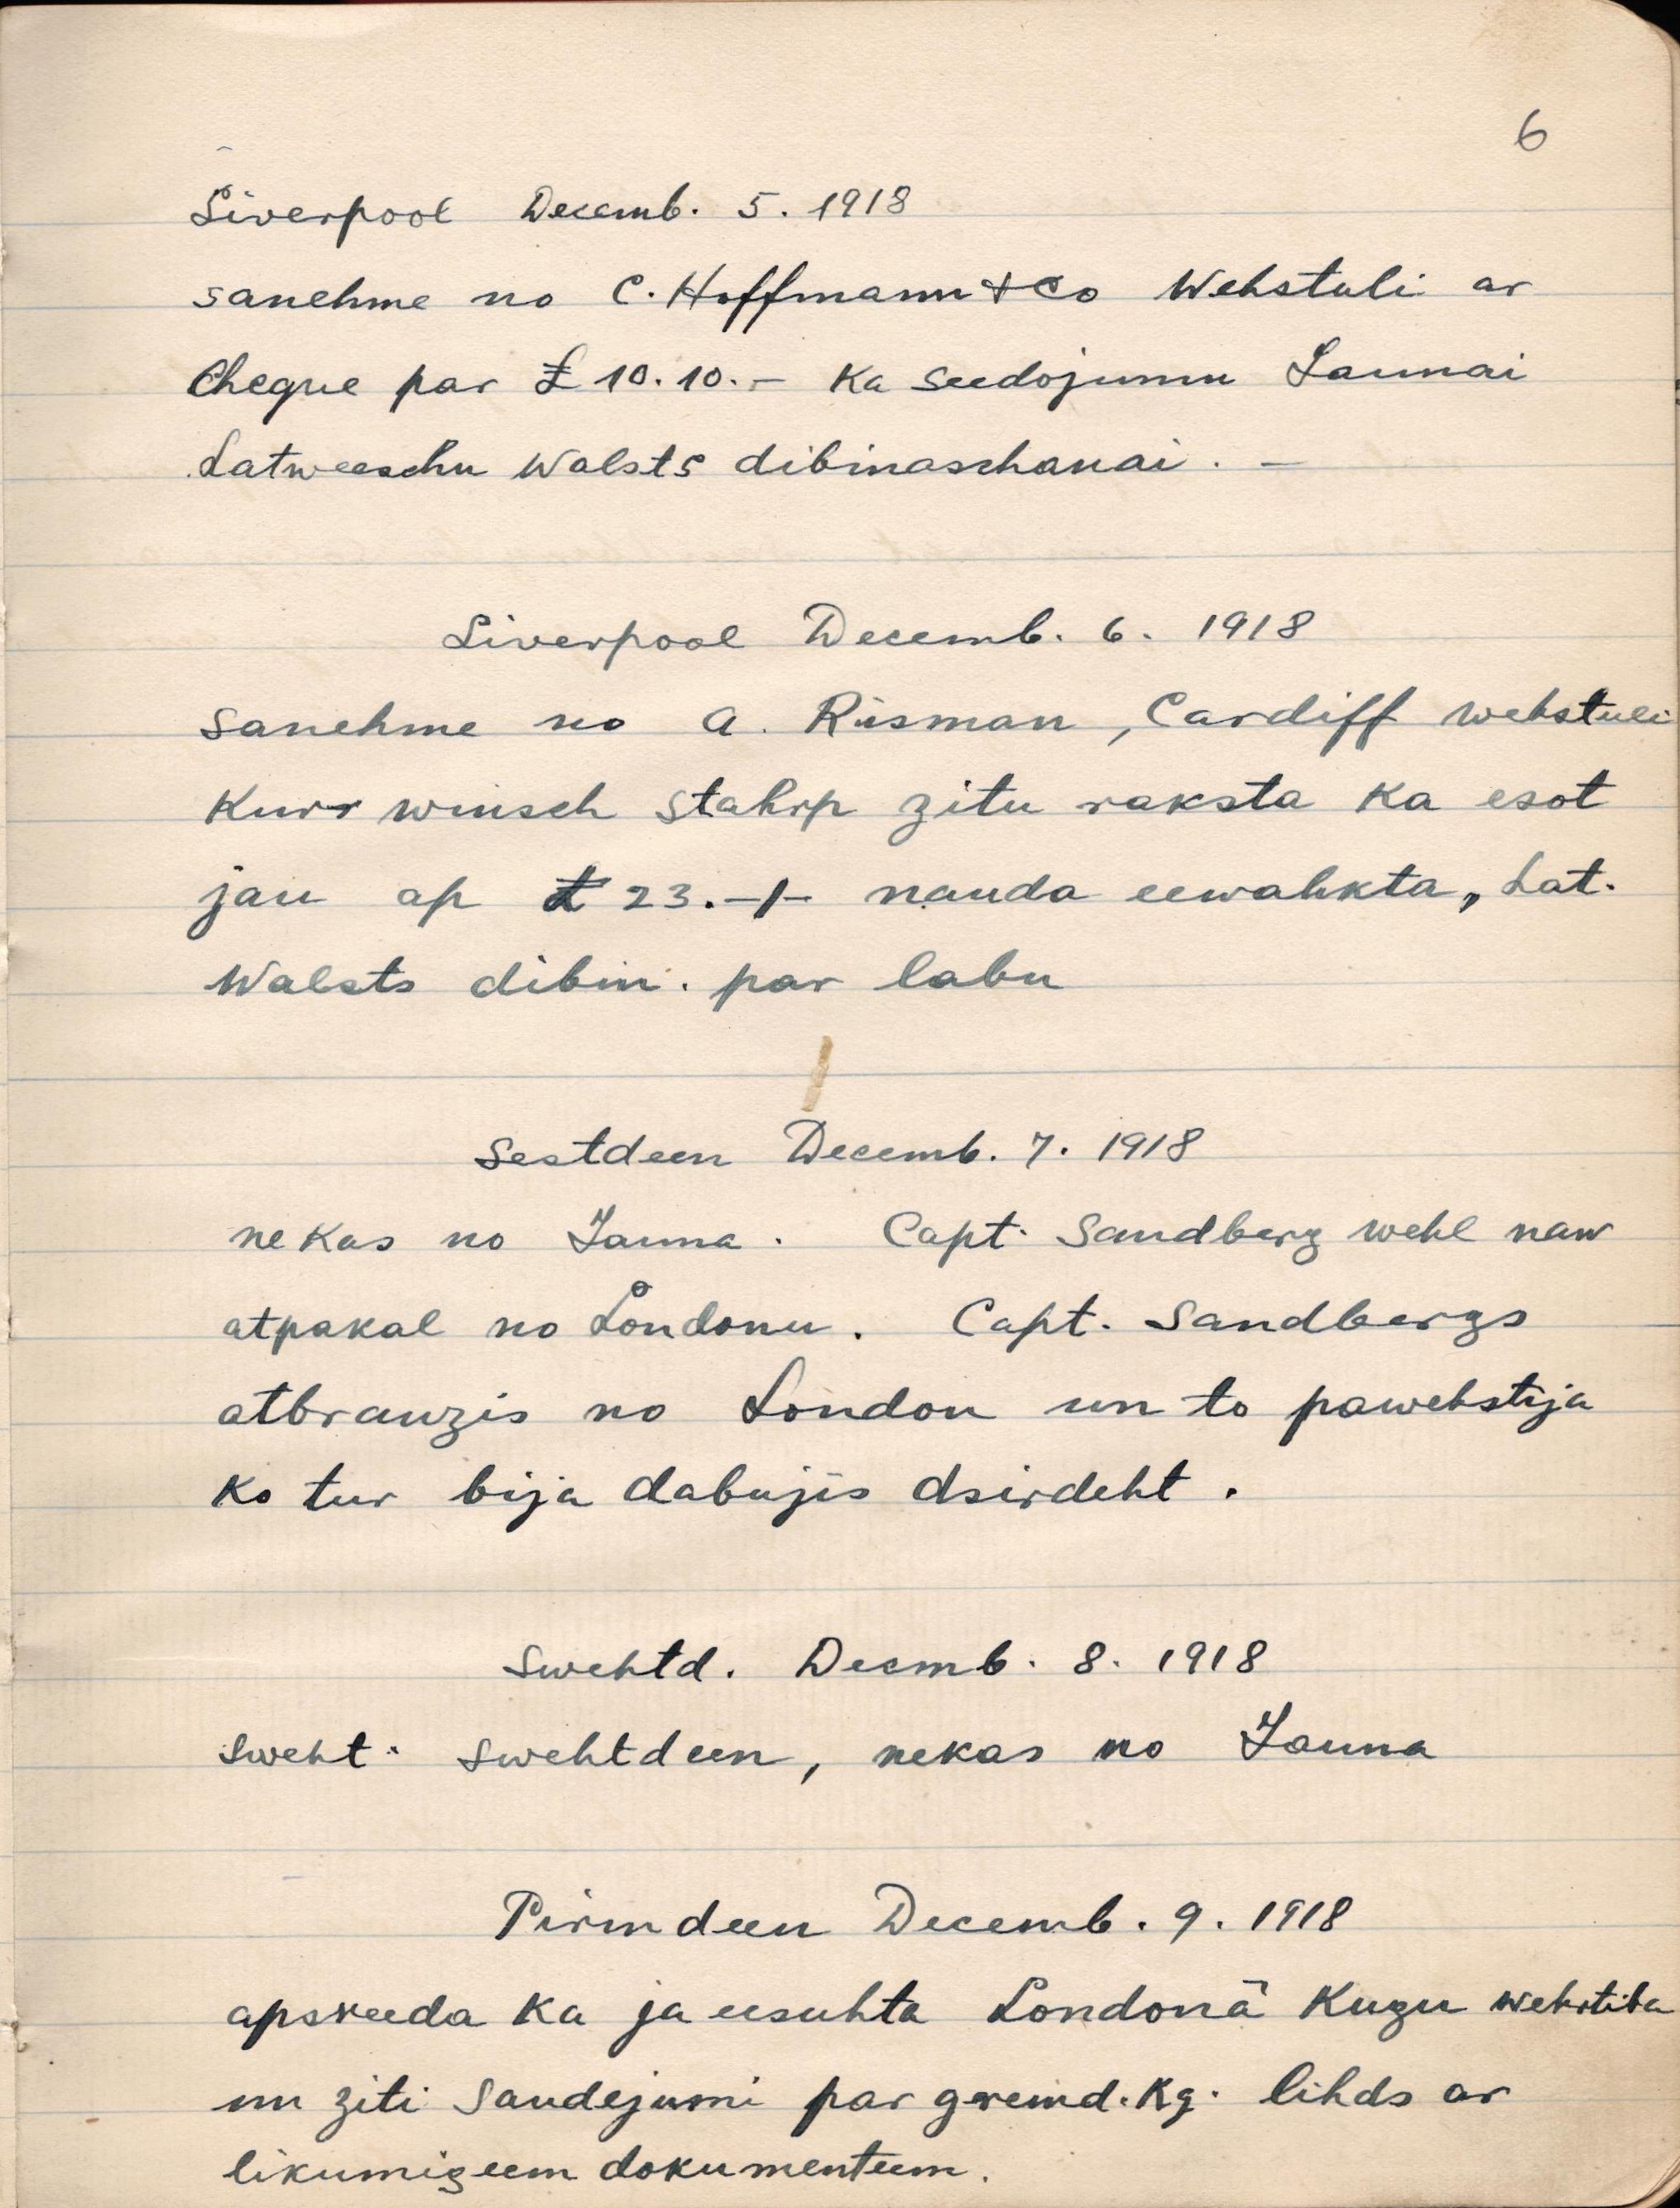 6
Liverpool Decemb. 5. 1918
sanehme no C. Hoffmann & Co Wehstuli ar
Cheque par £ 10.10.- Ka seedojumu Jaunai
Latweeschu Walsts dibinaschanai. -
Liverpool Decemb. 6. 1918
sanehme no A. Risman, Cardiff wehstuli
Kurr winsch stahrp zitu raksta Ka esot
jau ap £ 23.-/- nauda eewahkta, Lat.
Walsts dibin. par labu
Sestdeen Decemb. 7. 1918
nekas no Jauna. Capt. Sandberg wehl naw
atpakal no Londonu. Capt. Sandbergs
atbrauzis no London un to pawehstija
Ko tur bija dabujis dsirdeht.
Swehtd. Decmb. 8. 1918
Sweht. Swehtdeen, nekas no Jauna
Pirmdeen Decemb. 9. 1918
apsreeda Ka ja eesuhta Londonā Kugu wehrtiba
un ziti saudejumi par gremd. Kg. lihds ar
likumigeem dokumenteem.